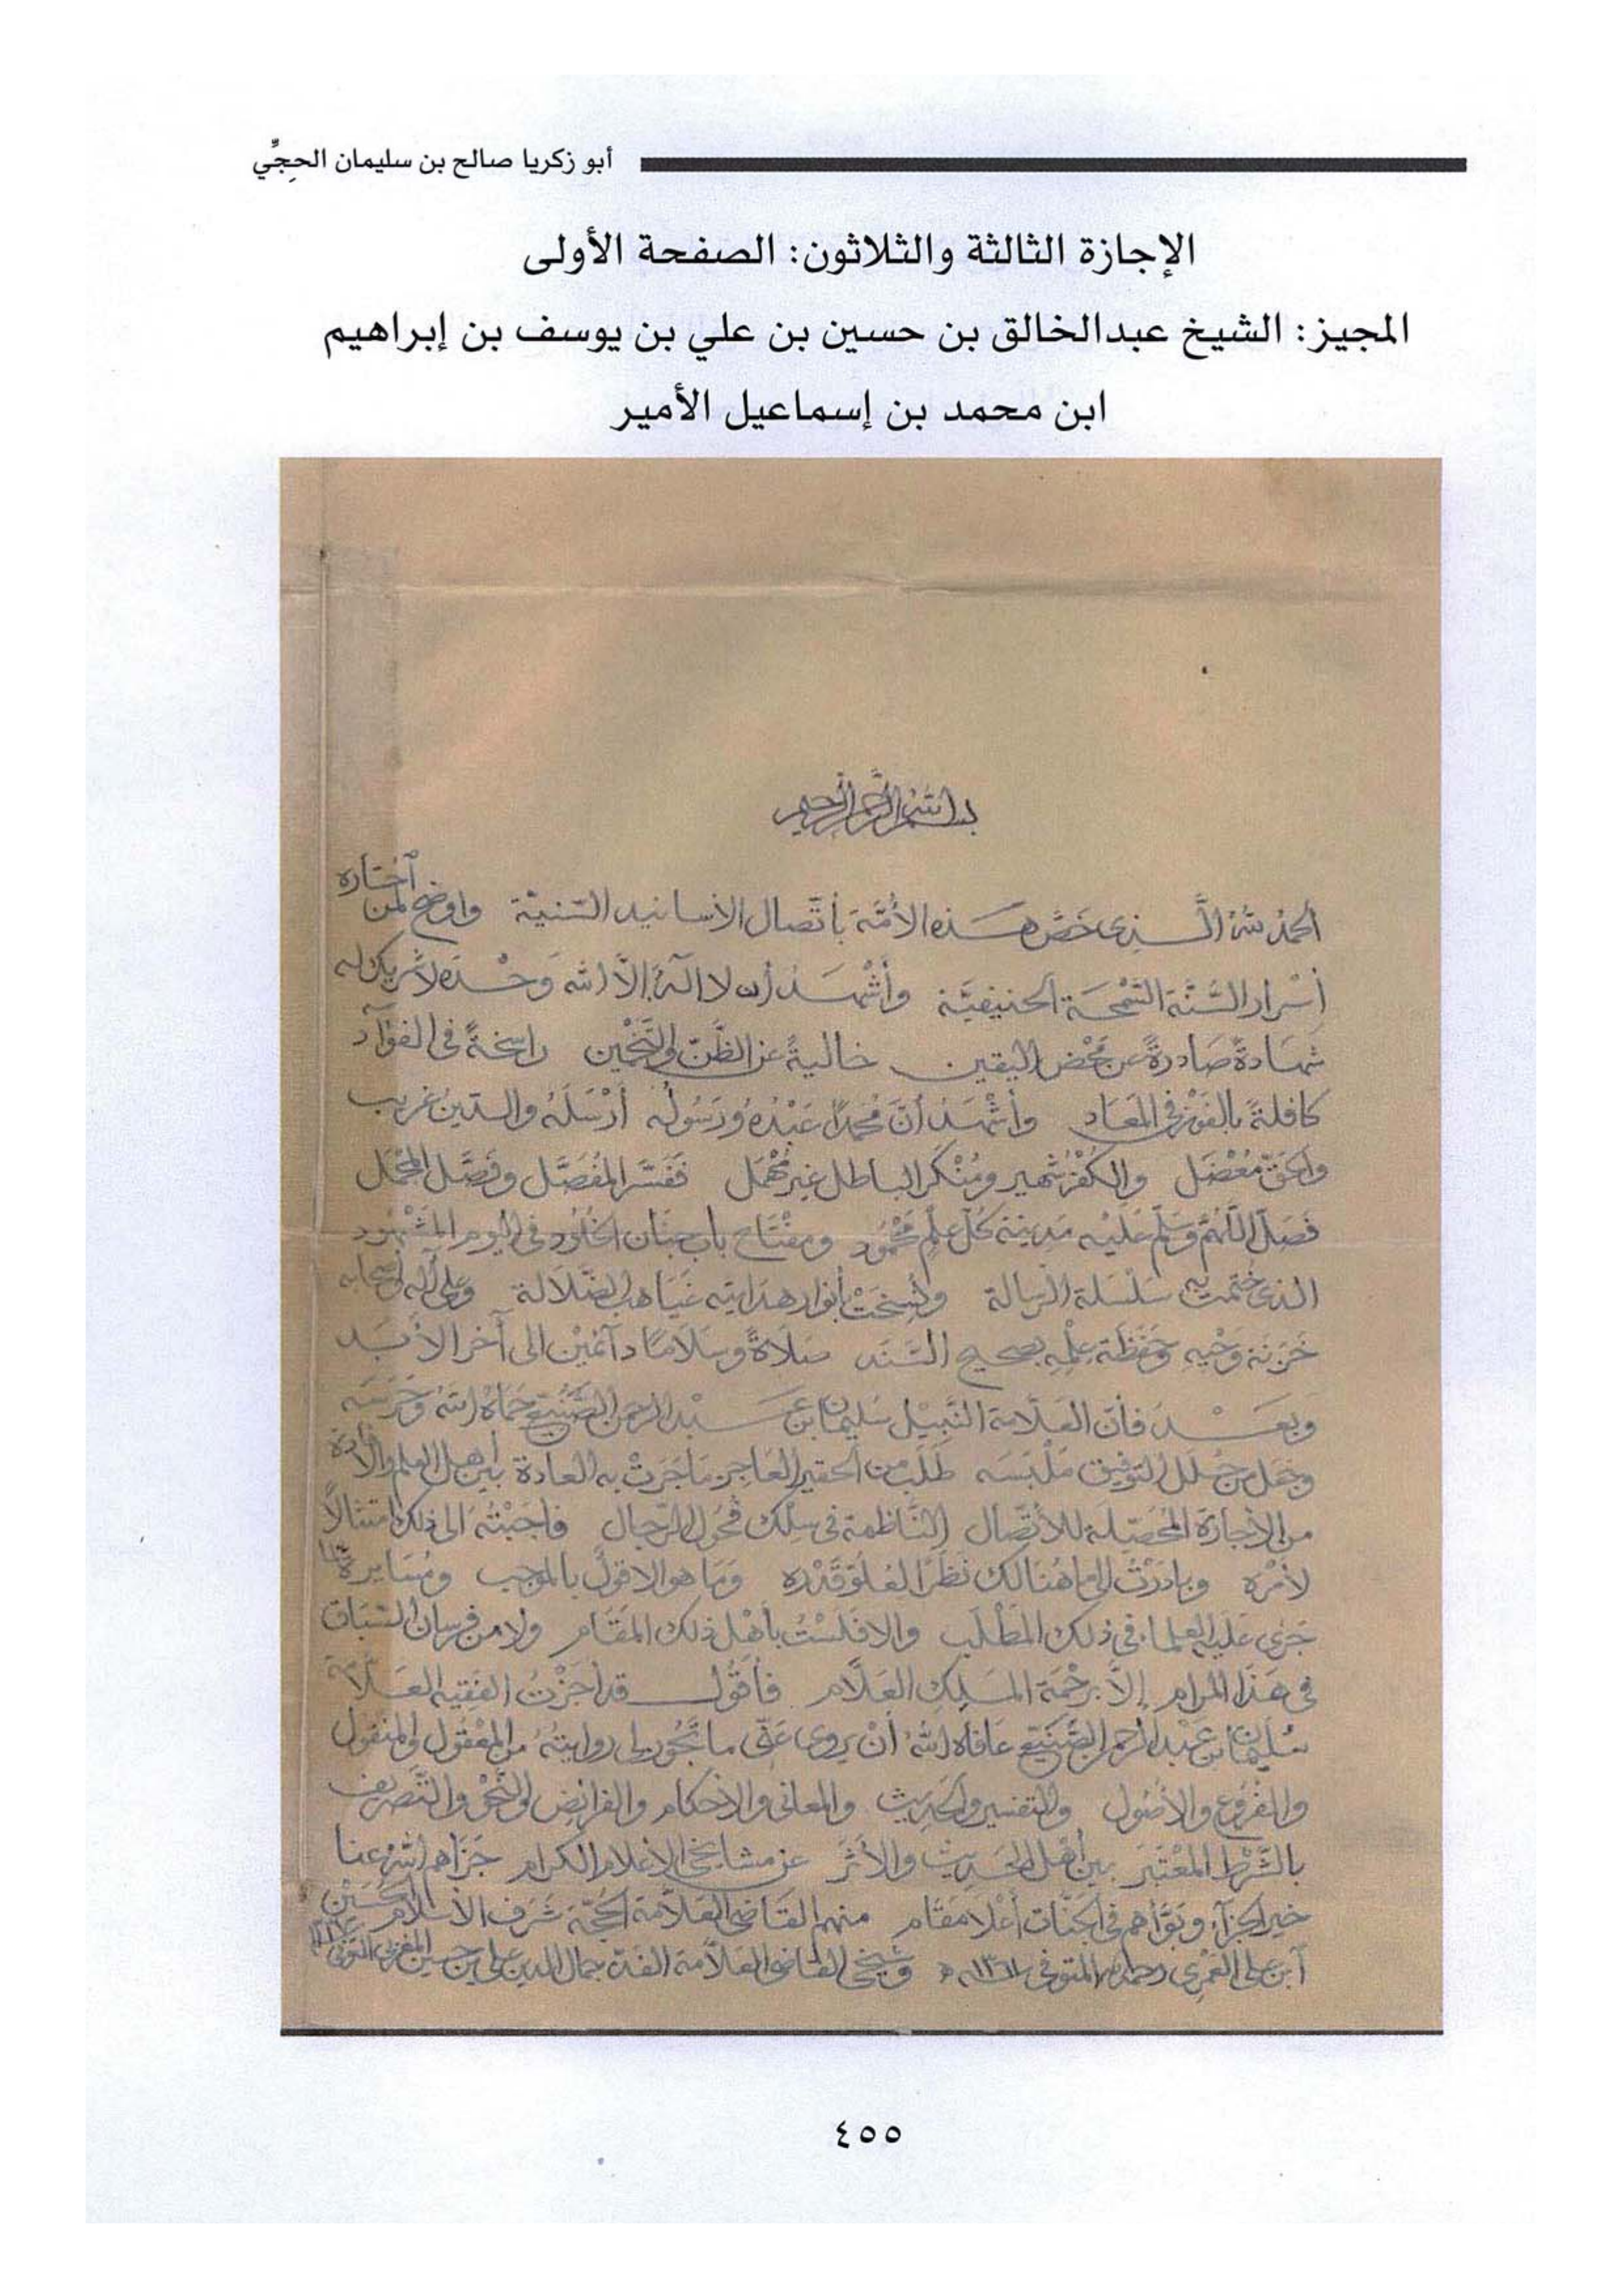 أبو زكريا صالح بن سليمان الحجِّي
الإجازة الثالثة والثلاثون: الصفحة الأولى
المجيز: الشيخ عبدالخالق بن حسين بن علي بن يوسف بن إبراهيم
ابن محمد بن إسماعيل الأمير
بسم الله الرحمن الرحيم
الحمد لله الذي خصّ هذه الأمّة بأتّصال الأسانيد السّنيّة وأوضح لمن اختاره
أسْرار السُّنّة السّمحة الحنيفيَّة وأشْهد أن لا اله إلّا الله وَحْده لا شريك له
شهادةً صَادرةً عن مَحْض اليقين خاليةً عن الظّن والتَّخْمين راسخةً في الفؤآد
كافلةً بالفَوْز في المعَاد وأشْهد أنّ مُحمداً عَبْدُهُ ورَسُولُه أرْسَلَهُ والدّينُ غريب
والحَقّ مُعْضَل والكُفْرُ شهير ومُنْكَر الباطل غير مُهْمَل فَفَسَّر المُفَصَّل وفَصَّل المُجْمَل
فَصَلّ اللّهُمّ وسَلّم عَلَيْه مَدينة كُلّ علْمٍ مَحْمُود ومفْتَاح باب جنَان الخُلُود في اليوم المَشْهُود
الذي خُتمت به سَلْسَلة الرسالة ونُسِخَتْ بأنوار هدَايته غَيَاهبُ الضّلالة وعلى آله وأصحابه
خَزَنة وَحْيهِ وحَفَظَة عِلْمِه بصحيح السَّنَد صَلاةً وسَلامًا دآئمَيْن إلى آخر الأبَد
وبعَــد فانّ العلّامة النّبيْل سُليمان بن عبد الرحمن الصَّنيْع حَمَاهُ الله وحَرسَه
وجَعَل من حُلَل التوفيق مَلْبَسَه طَلَب من الحقير العَاجز مَا جَرَتْ به العادة بين أهل العلم والأفادة
من الأجازة المُحَصِّلة للأتّصال النَّاظمة في سِلْك فُحُول الرّجال فاجَبْتُه الى ذلك امتثالاً
لأمْره وبَادَرْتُ إلى ما هُنَالك نَظَرًا لعُلوّ قَدْره وَمَا هو الا قولٌ بالموجب ومُسَايرةً لما
جَرَى عَلَيْه العلماء في ذلك المَطْلَب والا فلسْتُ بأهْل ذلك المَقَام ولا من فرسان السّبَاق
في هَذا المرام إلاَّ برَحْمَة المَلِك العَلّام فأقُول قد أجَزْتُ الفَقِيه العلّامة
سُليمان بن عبد الرحمن الصَّنيْع عَافاه الله أنْ يروي عَنّي ما تَجُوز لي روايتُهُ من المعْقول والمنقول
والفروع والأصُول والتفسير والحَديث والمعاني والأحكام والفرائِض والنّحْو والتّصريف
بالشّرْط المُعْتَبَر بين أهْل الحَديث والأثَر عن مشايخي الأعلام الكرام جَزاهم الله عنا
خير الجزآء وبَوَّأهم في الجَنّات أعْلا مقَام منهم القَاضي العَلّامة الحجّة شَرَف الأسْلام الحُسَيْن
ابن علي العَمْري رحمه الله المتوفي ١٣٦١هـ وشيخي القاضي العَلّامة جمال الدين علي بن حسين المغربي المتوفى
٤٥٥